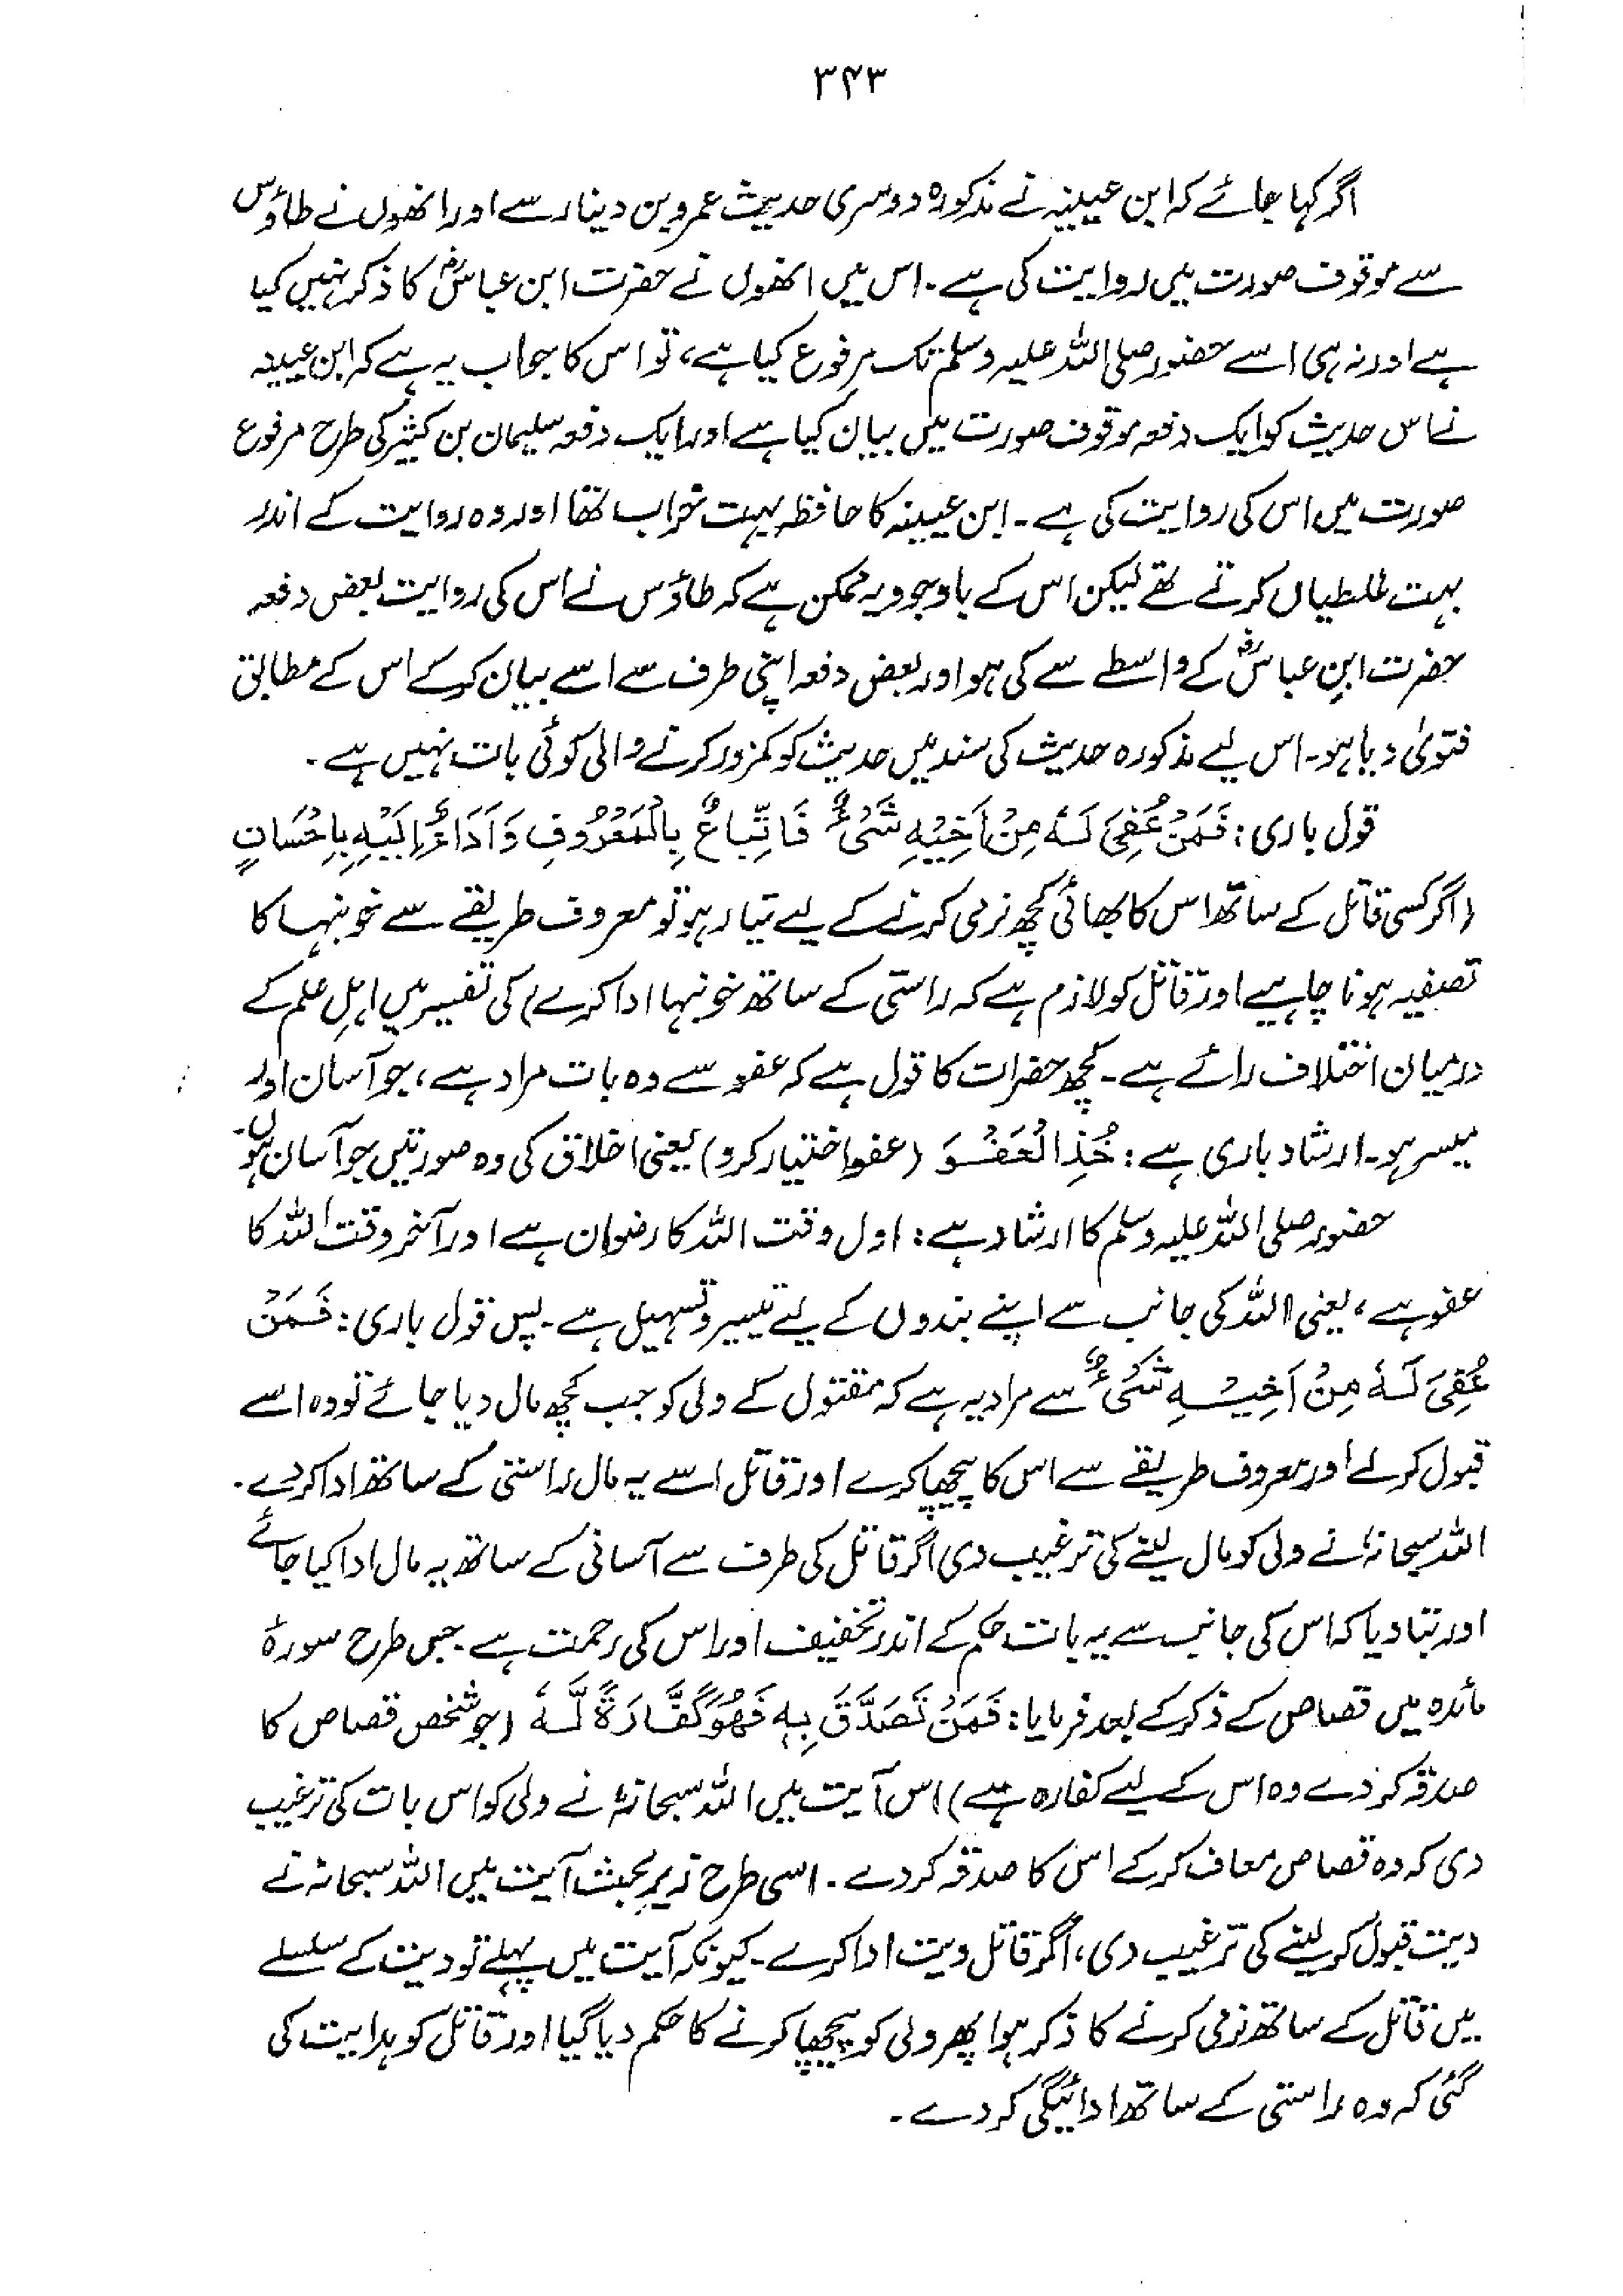 ۳۴۳
اگر کہا جائے کہ ابن عیینہ نے مذکورہ دوسری حدیث عمرو بن دینار سے اور انھوں نے طاؤس
سے موقوف صورت میں روایت کی ہے۔ اس میں انھوں نے حضرت ابن عباسؓ کا ذکر نہیں کیا
ہے اور نہ ہی اسے حضور صلی اللہ علیہ وسلم تک مرفوع کیا ہے، تو اس کا جواب یہ ہے کہ ابن عیینہ
نے اس حدیث کو ایک دفعہ موقوف صورت میں بیان کیا ہے اور ایک دفعہ سلیمان بن کثیر کی طرح مرفوع
صورت میں اس کی روایت کی ہے۔ ابن عیینہ کا حافظہ بہت خراب تھا اور وہ روایت کے اندر
بہت غلطیاں کرتے تھے لیکن اس کے باوجود یہ ممکن ہے کہ طاؤس نے اس کی روایت بعض دفعہ
حضرت ابنِ عباسؓ کے واسطے سے کی ہو اور بعض دفعہ اپنی طرف سے اسے بیان کر کے اس کے مطابق
فتویٰ دیا ہو۔ اس لیے مذکورہ حدیث کی سند میں حدیث کو کمزور کرنے والی کوئی بات نہیں ہے۔
قول باری: فَمَنْ عُفِیَ لَہٗ مِنْ اَخِیْہِ شَیْءٌ فَاتِّبَاعٌ بِالْمَعْرُوْفِ وَاَدَاءٌ اِلَیْہِ بِاِحْسَانٍ
(اگر کسی قاتل کے ساتھ اس کا بھائی کچھ نرمی کرنے کے لیے تیار ہو تو معروف طریقے سے خونبہا کا
تصفیہ ہونا چاہیے اور قاتل کو لازم ہے کہ راستی کے ساتھ خونبہا ادا کرے) کی تفسیر میں اہلِ علم کے
درمیان اختلاف رائے ہے۔ کچھ حضرات کا قول ہے کہ عفو سے وہ بات مراد ہے، جو آسان اور
میسر ہو۔ ارشاد باری ہے: خُذِ الْعَفْوَ (عفو اختیار کرو) یعنی اخلاق کی وہ صورتیں جو آسان ہوں۔
حضور صلی اللہ علیہ وسلم کا ارشاد ہے: اول وقت اللہ کا رضوان ہے اور آخر وقت اللہ کا
عفو ہے، یعنی اللہ کی جانب سے اپنے بندوں کے لیے تیسیر و تسہیل ہے۔ پس قول باری: فَمَنْ
عُفِیَ لَہٗ مِنْ اَخِیْہِ شَیْءٌ سے مراد یہ ہے کہ مقتول کے ولی کو جب کچھ مال دیا جائے تو وہ اسے
قبول کر لے اور معروف طریقے سے اس کا پیچھا کرے اور قاتل اسے یہ مال راستی کے ساتھ ادا کر دے۔
اللہ سبحانہٗ نے ولی کو مال لینے کی ترغیب دی اگر قاتل کی طرف سے آسانی کے ساتھ یہ مال ادا کیا جائے
اور بتا دیا کہ اس کی جانب سے یہ بات حکم کے اندر تخفیف اور اس کی رحمت ہے۔ جس طرح سورۂ
مائدہ میں قصاص کے ذکر کے بعد فرمایا: فَمَنْ تَصَدَّقَ بِہٖ فَھُوَ کَفَّارَۃٌ لَّہٗ (جو شخص قصاص کا
صدقہ کر دے وہ اس کے لیے کفارہ ہے) اس آیت میں اللہ سبحانہٗ نے ولی کو اس بات کی ترغیب
دی کہ وہ قصاص معاف کر کے اس کا صدقہ کر دے۔ اسی طرح زیرِ بحث آیت میں اللہ سبحانہ نے
دیت قبول کر لینے کی ترغیب دی، اگر قاتل دیت ادا کرے۔ کیونکہ آیت میں پہلے تو دیت کے سلسلے
میں قاتل کے ساتھ نرمی کرنے کا ذکر ہوا پھر ولی کو پیچھا کرنے کا حکم دیا گیا اور قاتل کو ہدایت کی
گئی کہ وہ راستی کے ساتھ ادائیگی کر دے۔